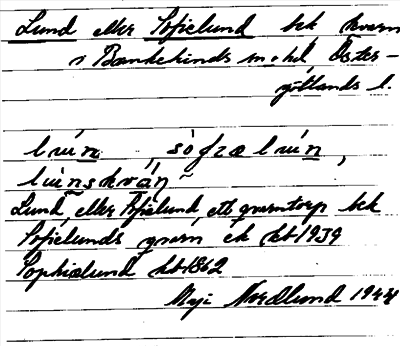 Lund eller Sofielund bek kvarn
i Bankekinds sn o hd, Öster-
götlands l.
luǹn, sòfıæ luǹn,
luǹnskván
Lund, eller Sofielund, ett qvarntorp bek
Sofielunds qvarn ek kb 1939
Sophialund kb 1862
Maji Nordlund 1944